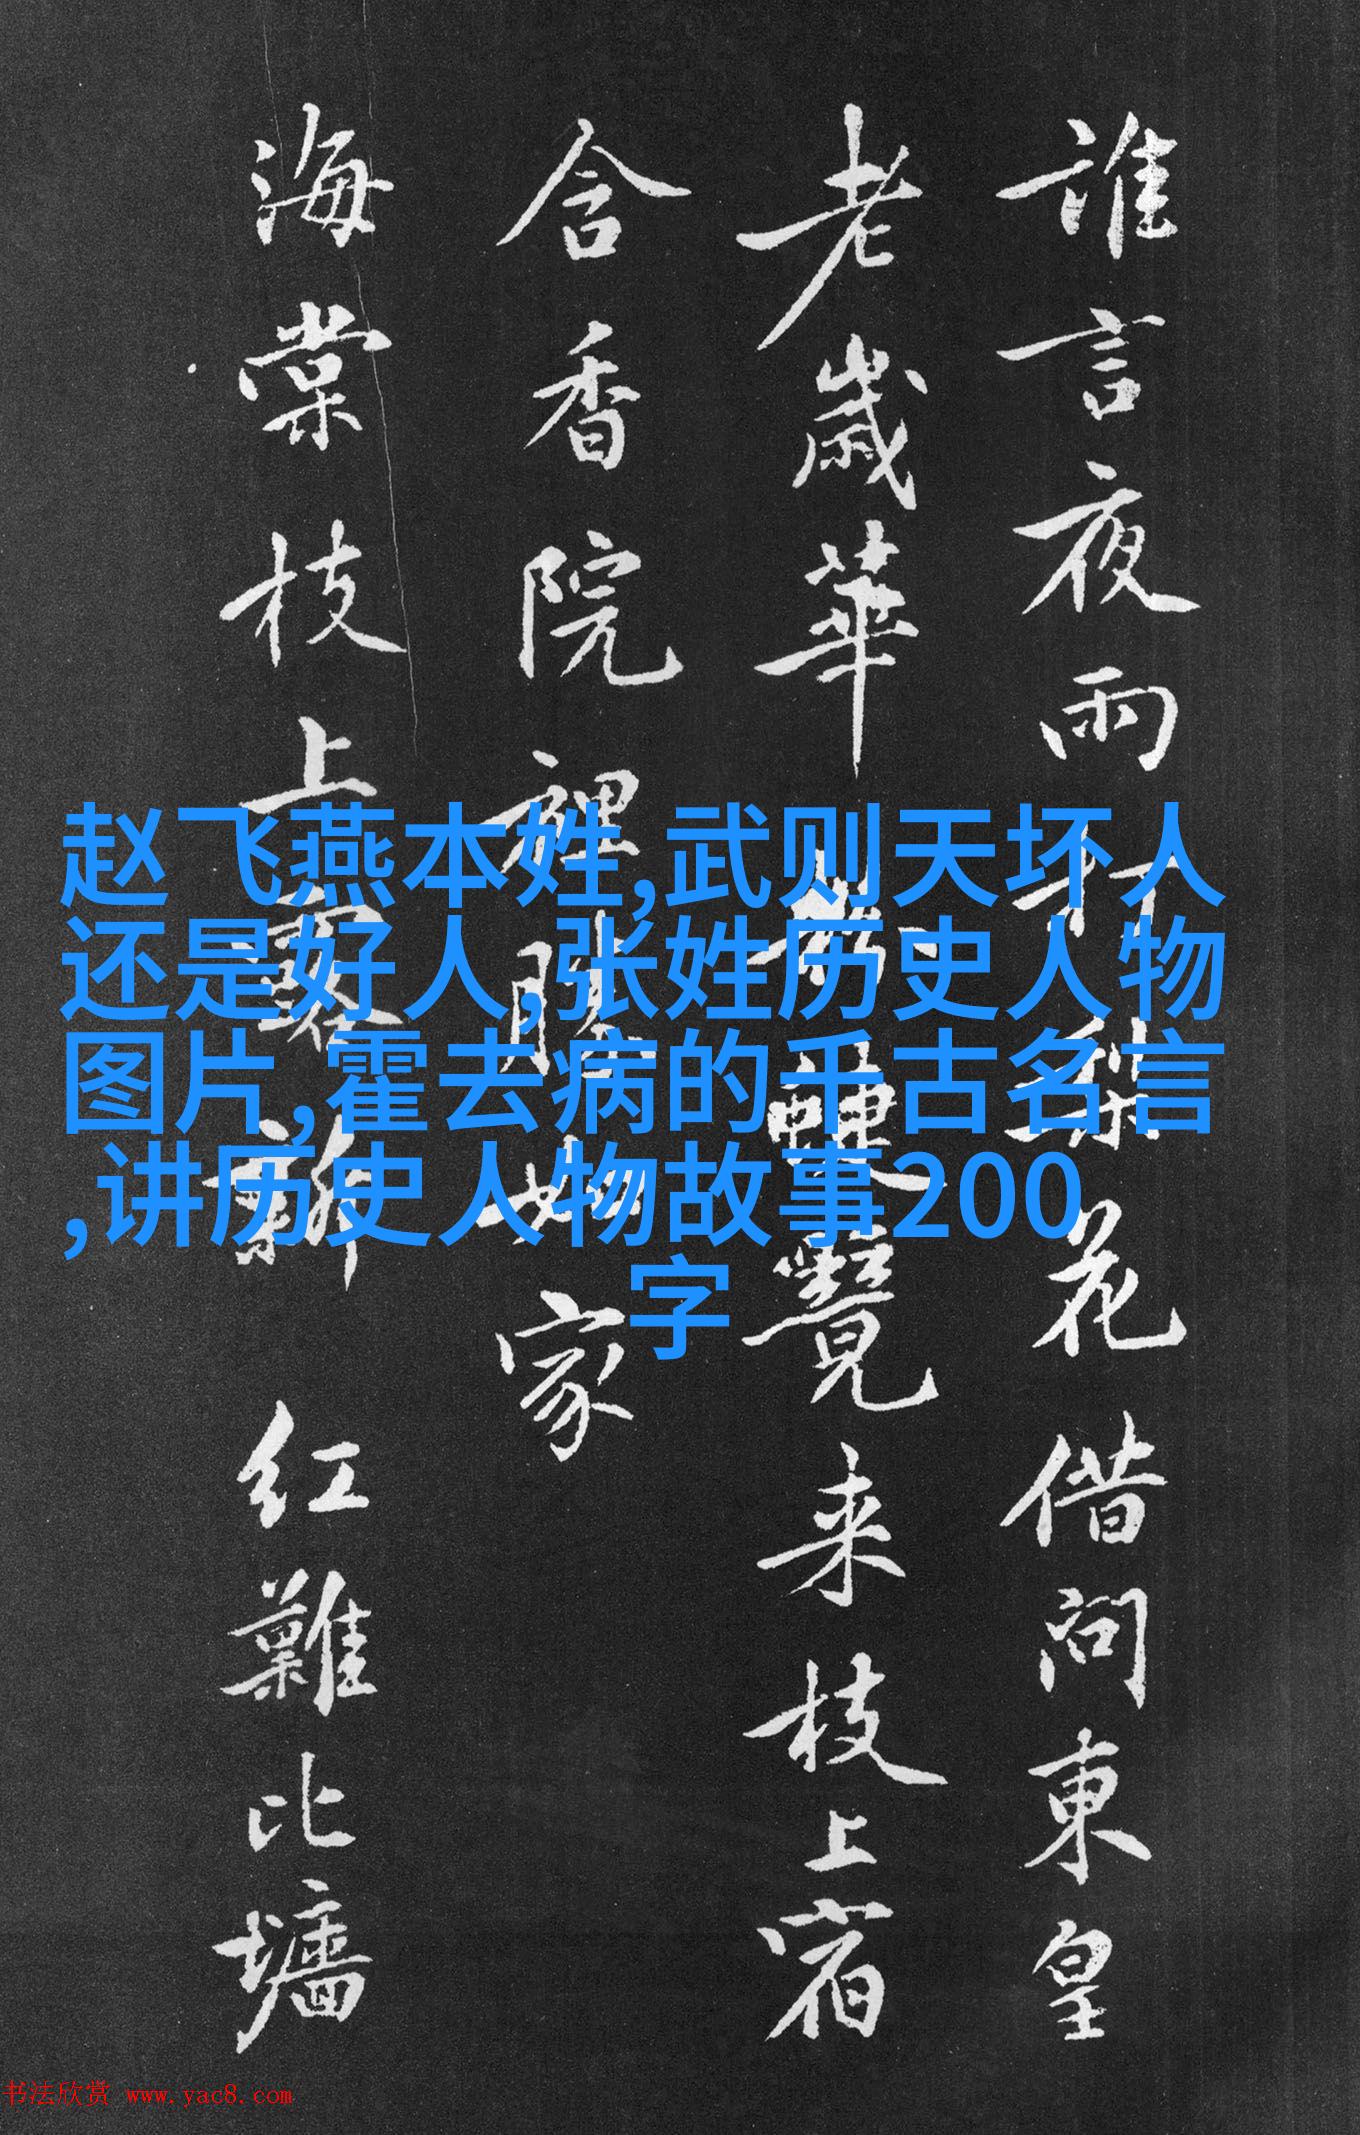 誰言夜雨打梨花借問東皇
老歲華覺来枝上宿
含香院裡勝如家
海棠枝上新红難比墻
赵飞燕本姓,武则天坏人
还是好人,张姓历史人物
图片,霍去病的千古名言
,讲历史人物故事200
字
书法欣赏 www.yac8.com